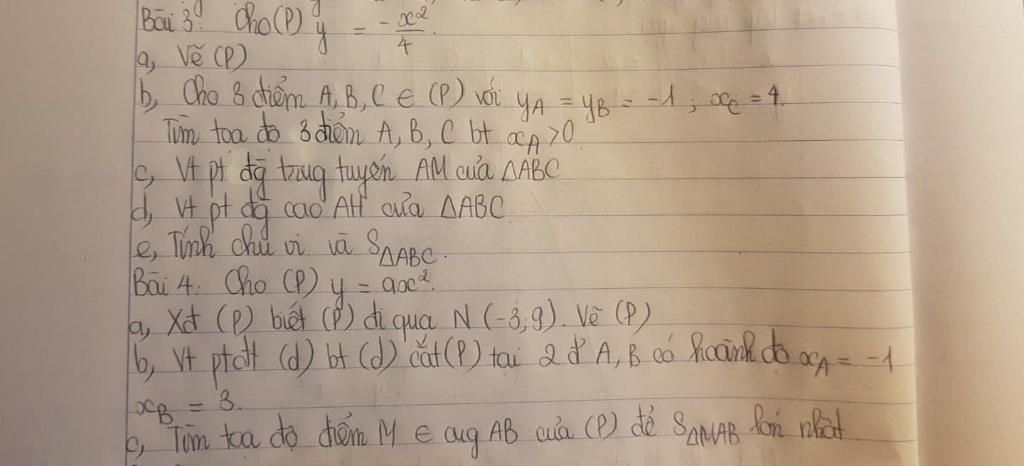 Bài 3: Cho (P) y = -x²/4.
a, Vẽ (P)
b, Cho 3 điểm A, B, C ∈ (P) với y_A = y_B = -1; x_C = 4.
Tìm tọa độ 3 điểm A, B, C bt x_A > 0
c, Vt pt đg trug tuyến AM của ΔABC
d, Vt pt đg cao AH của ΔABC
e, Tính chu vi và S_ΔABC.
Bài 4: Cho (P) y = ax².
a, Xđ (P) biết (P) đi qua N (-3; 9). Vẽ (P)
b, Vt ptđt (d) bt (d) cắt (P) tại 2 đ' A, B có hoành độ x_A = -1
x_B = 3.
c, Tìm tọa độ điểm M ∈ cug AB của (P) để S_ΔMAB lớn nhất